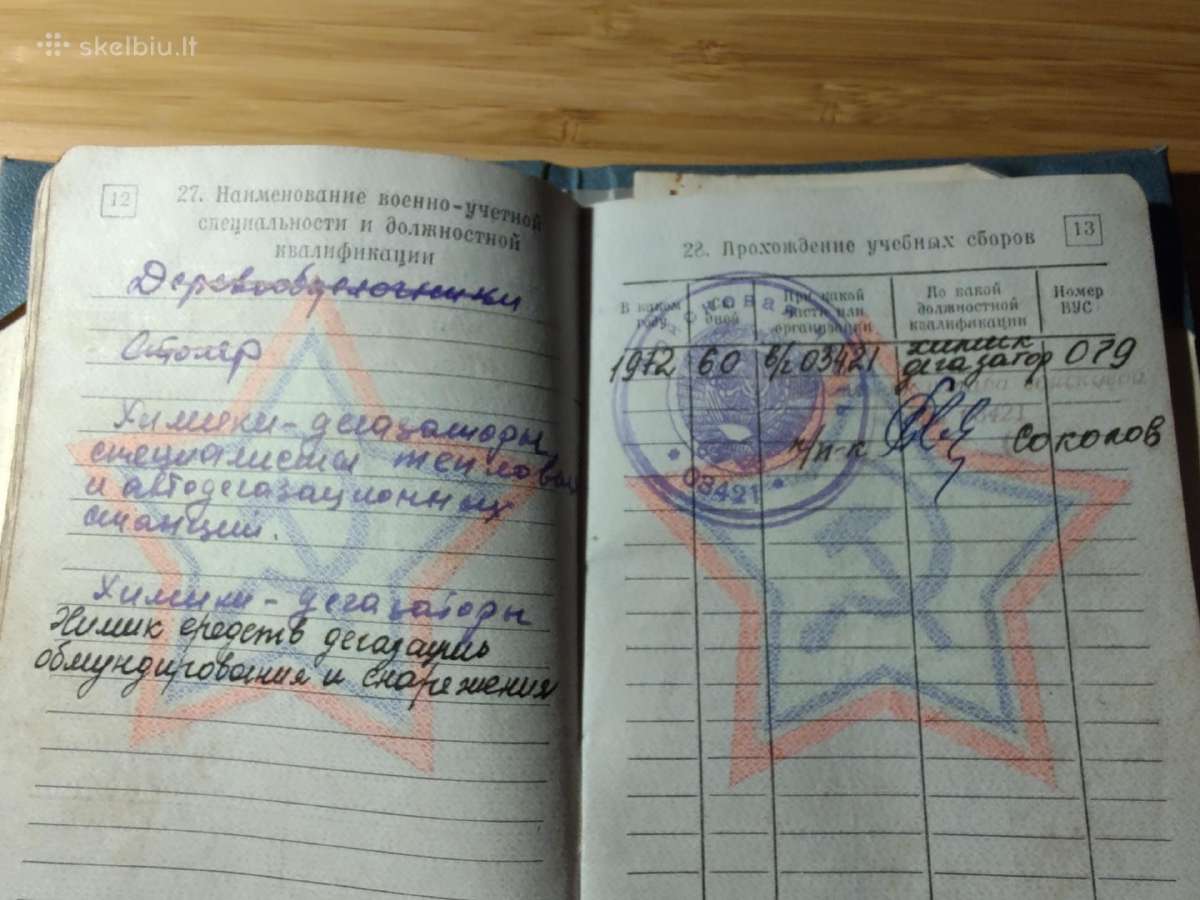 skelbiu.lt
12
27. Наименование военно-учетной
специальности и должностной
квалификации
Деревообделочники
Столяр
Химики-дегазаторы,
специалисты тепловых
и автодегазационных
станций.
Химики-дегазаторы
Химик средств дегазации
обмундирования и снаряжения
13
28. Прохождение учебных сборов
В каком году
дней
При какой части или организации
По какой должностной квалификации
Номер ВУС
1972
60
в/ч 03421
химик дегазатор
079
п/п-к
Соколов
03421